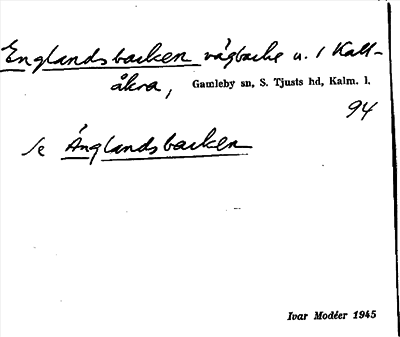 Englandsbacken vägbacke u. / Kall-
åkra, Gamleby sn, S. Tjusts hd, Kalm. l.
94
Se Änglandsbacken
Ivar Modéer 1945